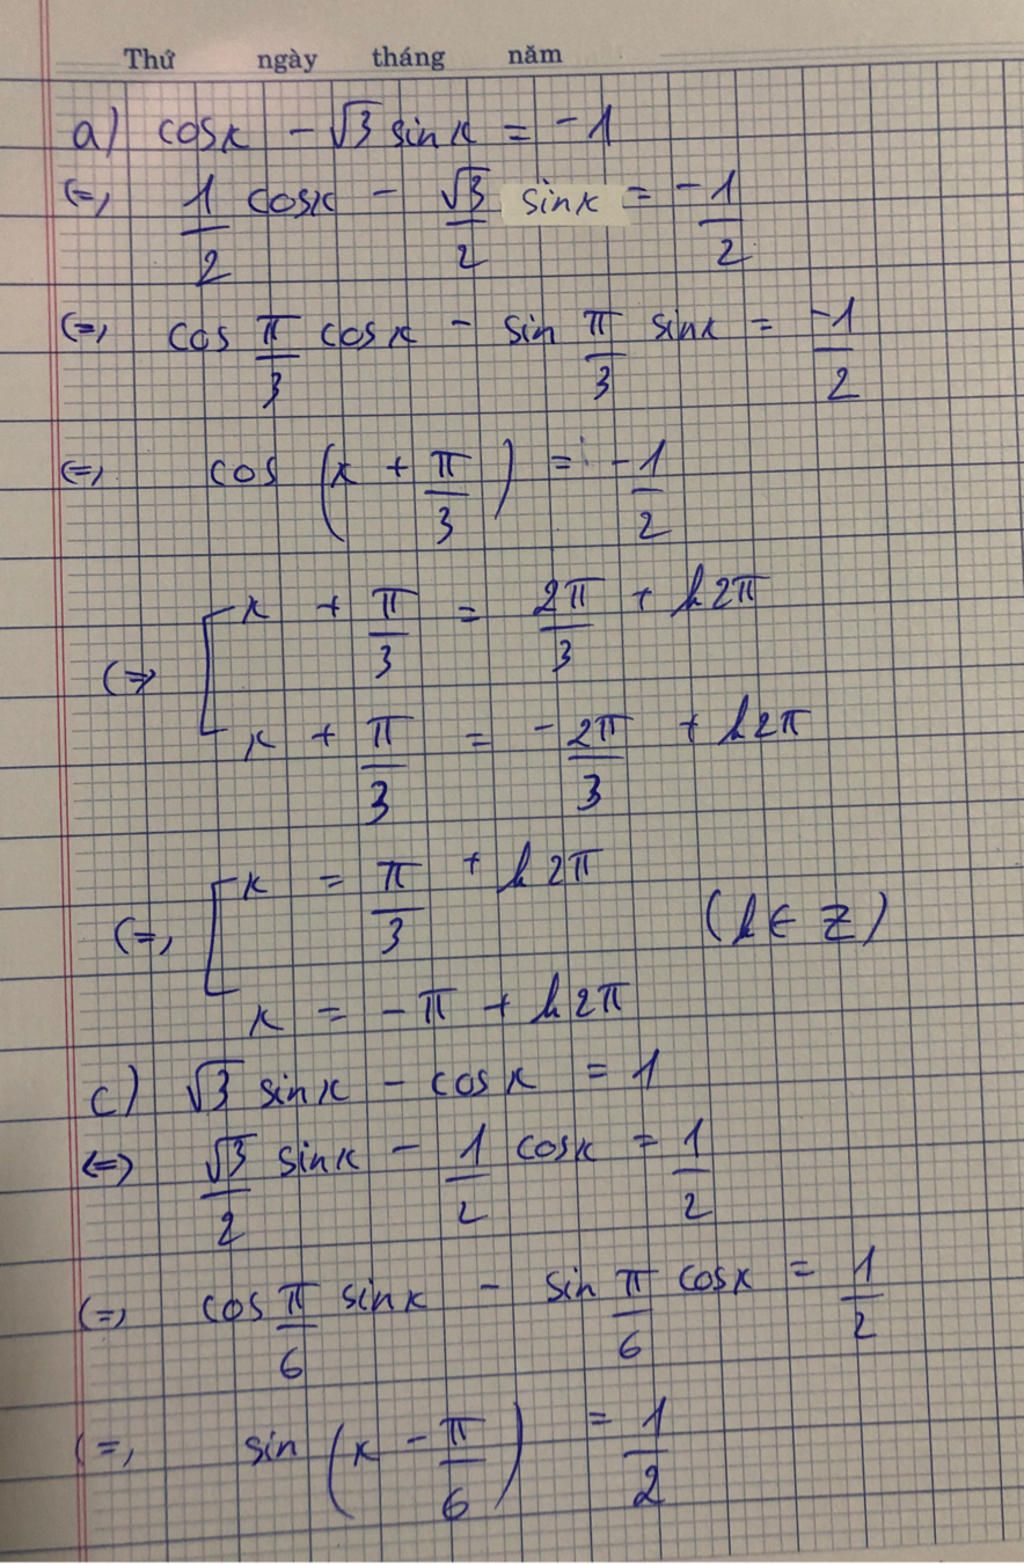 Thứ ngày tháng năm
a) cosx - √3 sinx = -1
(=) 1/2 cosx - √3/2 sinx = -1/2
(=) cos π/3 cosx - sin π/3 sinx = -1/2
(=) cos (x + π/3) = -1/2
(=> [ x + π/3 = 2π/3 + k2π
x + π/3 = -2π/3 + k2π
(=) [ x = π/3 + k2π (k ∈ Z)
x = -π + k2π
c) √3 sinx - cosx = 1
<=> √3/2 sinx - 1/2 cosx = 1/2
(=) cos π/6 sinx - sin π/6 cosx = 1/2
(=) sin (x - π/6) = 1/2